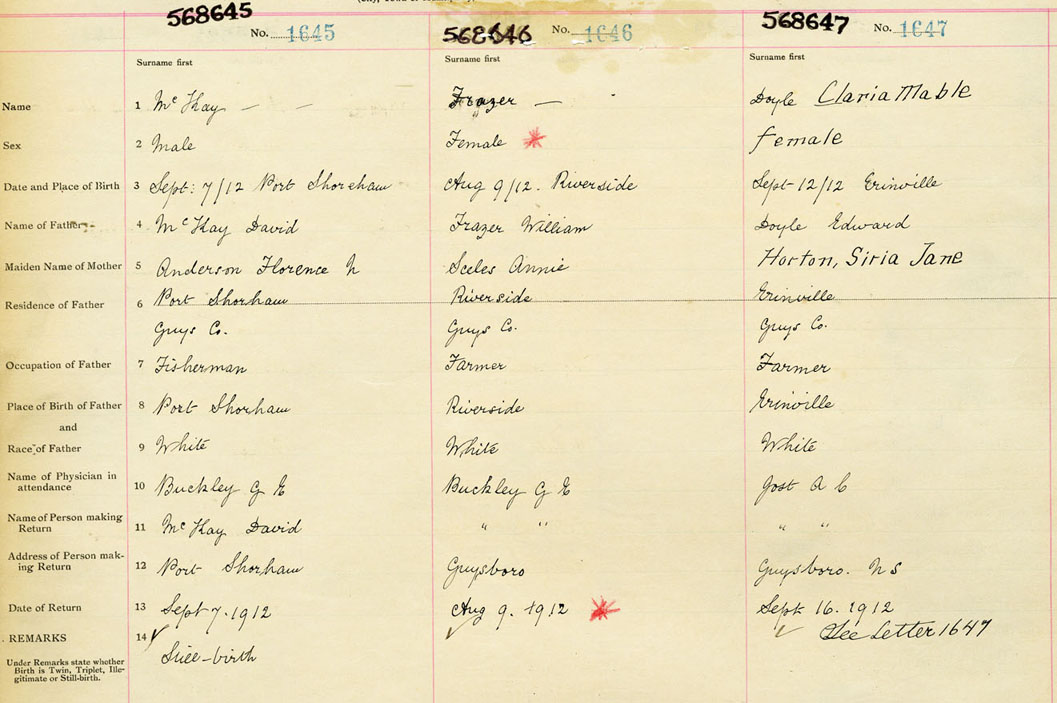 568645 No. 1645 568646 No. 1646 568647 No. 1647
Surname first Surname first Surname first
Name 1 Mc Kay — — Frazer — Doyle Claria Mable
Sex 2 Male Female Female
Date and Place of Birth 3 Sept: 7/12 Port Shoreham Aug 9/12. Riverside Sept 12/12 Erinville
Name of Father 4 Mc Kay David Frazer William Doyle Edward
Maiden Name of Mother 5 Anderson Florence N Sceles Annie Horton, Siria Jane
Residence of Father 6 Port Shorham Riverside Erinville
Guys Co. Guys Co. Guys Co.
Occupation of Father 7 Fisherman Farmer Farmer
Place of Birth of Father 8 Port Shorham Riverside Erinville
and
Race of Father 9 White White White
Name of Physician in
attendance 10 Buckley G E Buckley G E Jost A C
Name of Person making
Return 11 Mc Kay David " " " "
Address of Person mak-
ing Return 12 Port Shorham Guysboro Guysboro. N S
Date of Return 13 Sept 7. 1912 Aug 9. 1912 Sept 16. 1912
REMARKS 14 See Letter 1647
Under Remarks state whether
Birth is Twin, Triplet, Ille-
gitimate or Still-birth. Still-birth